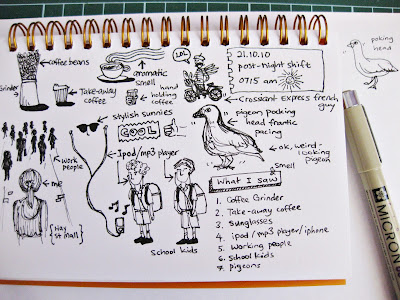 coffee beans
grinder
Take-away
coffee
aromatic
smell
hand
holding
coffee
LOL
21.10.10
post-night shift
0715 am
Croissant Express french
guy
poking
head
stylish sunnies
COOL
pigeon pecking
head frantic
pacing
ok, weird-
looking
pigeon
smell
work
people
me
{Hay
St Mall}
Ipod/mp3 player
School kids
What I saw
1. Coffee Grinder
2. Take-away coffee
3. Sunglasses
4. ipod/mp3 player/iphone
5. Working people
6. School kids
7. pigeons
MICRON